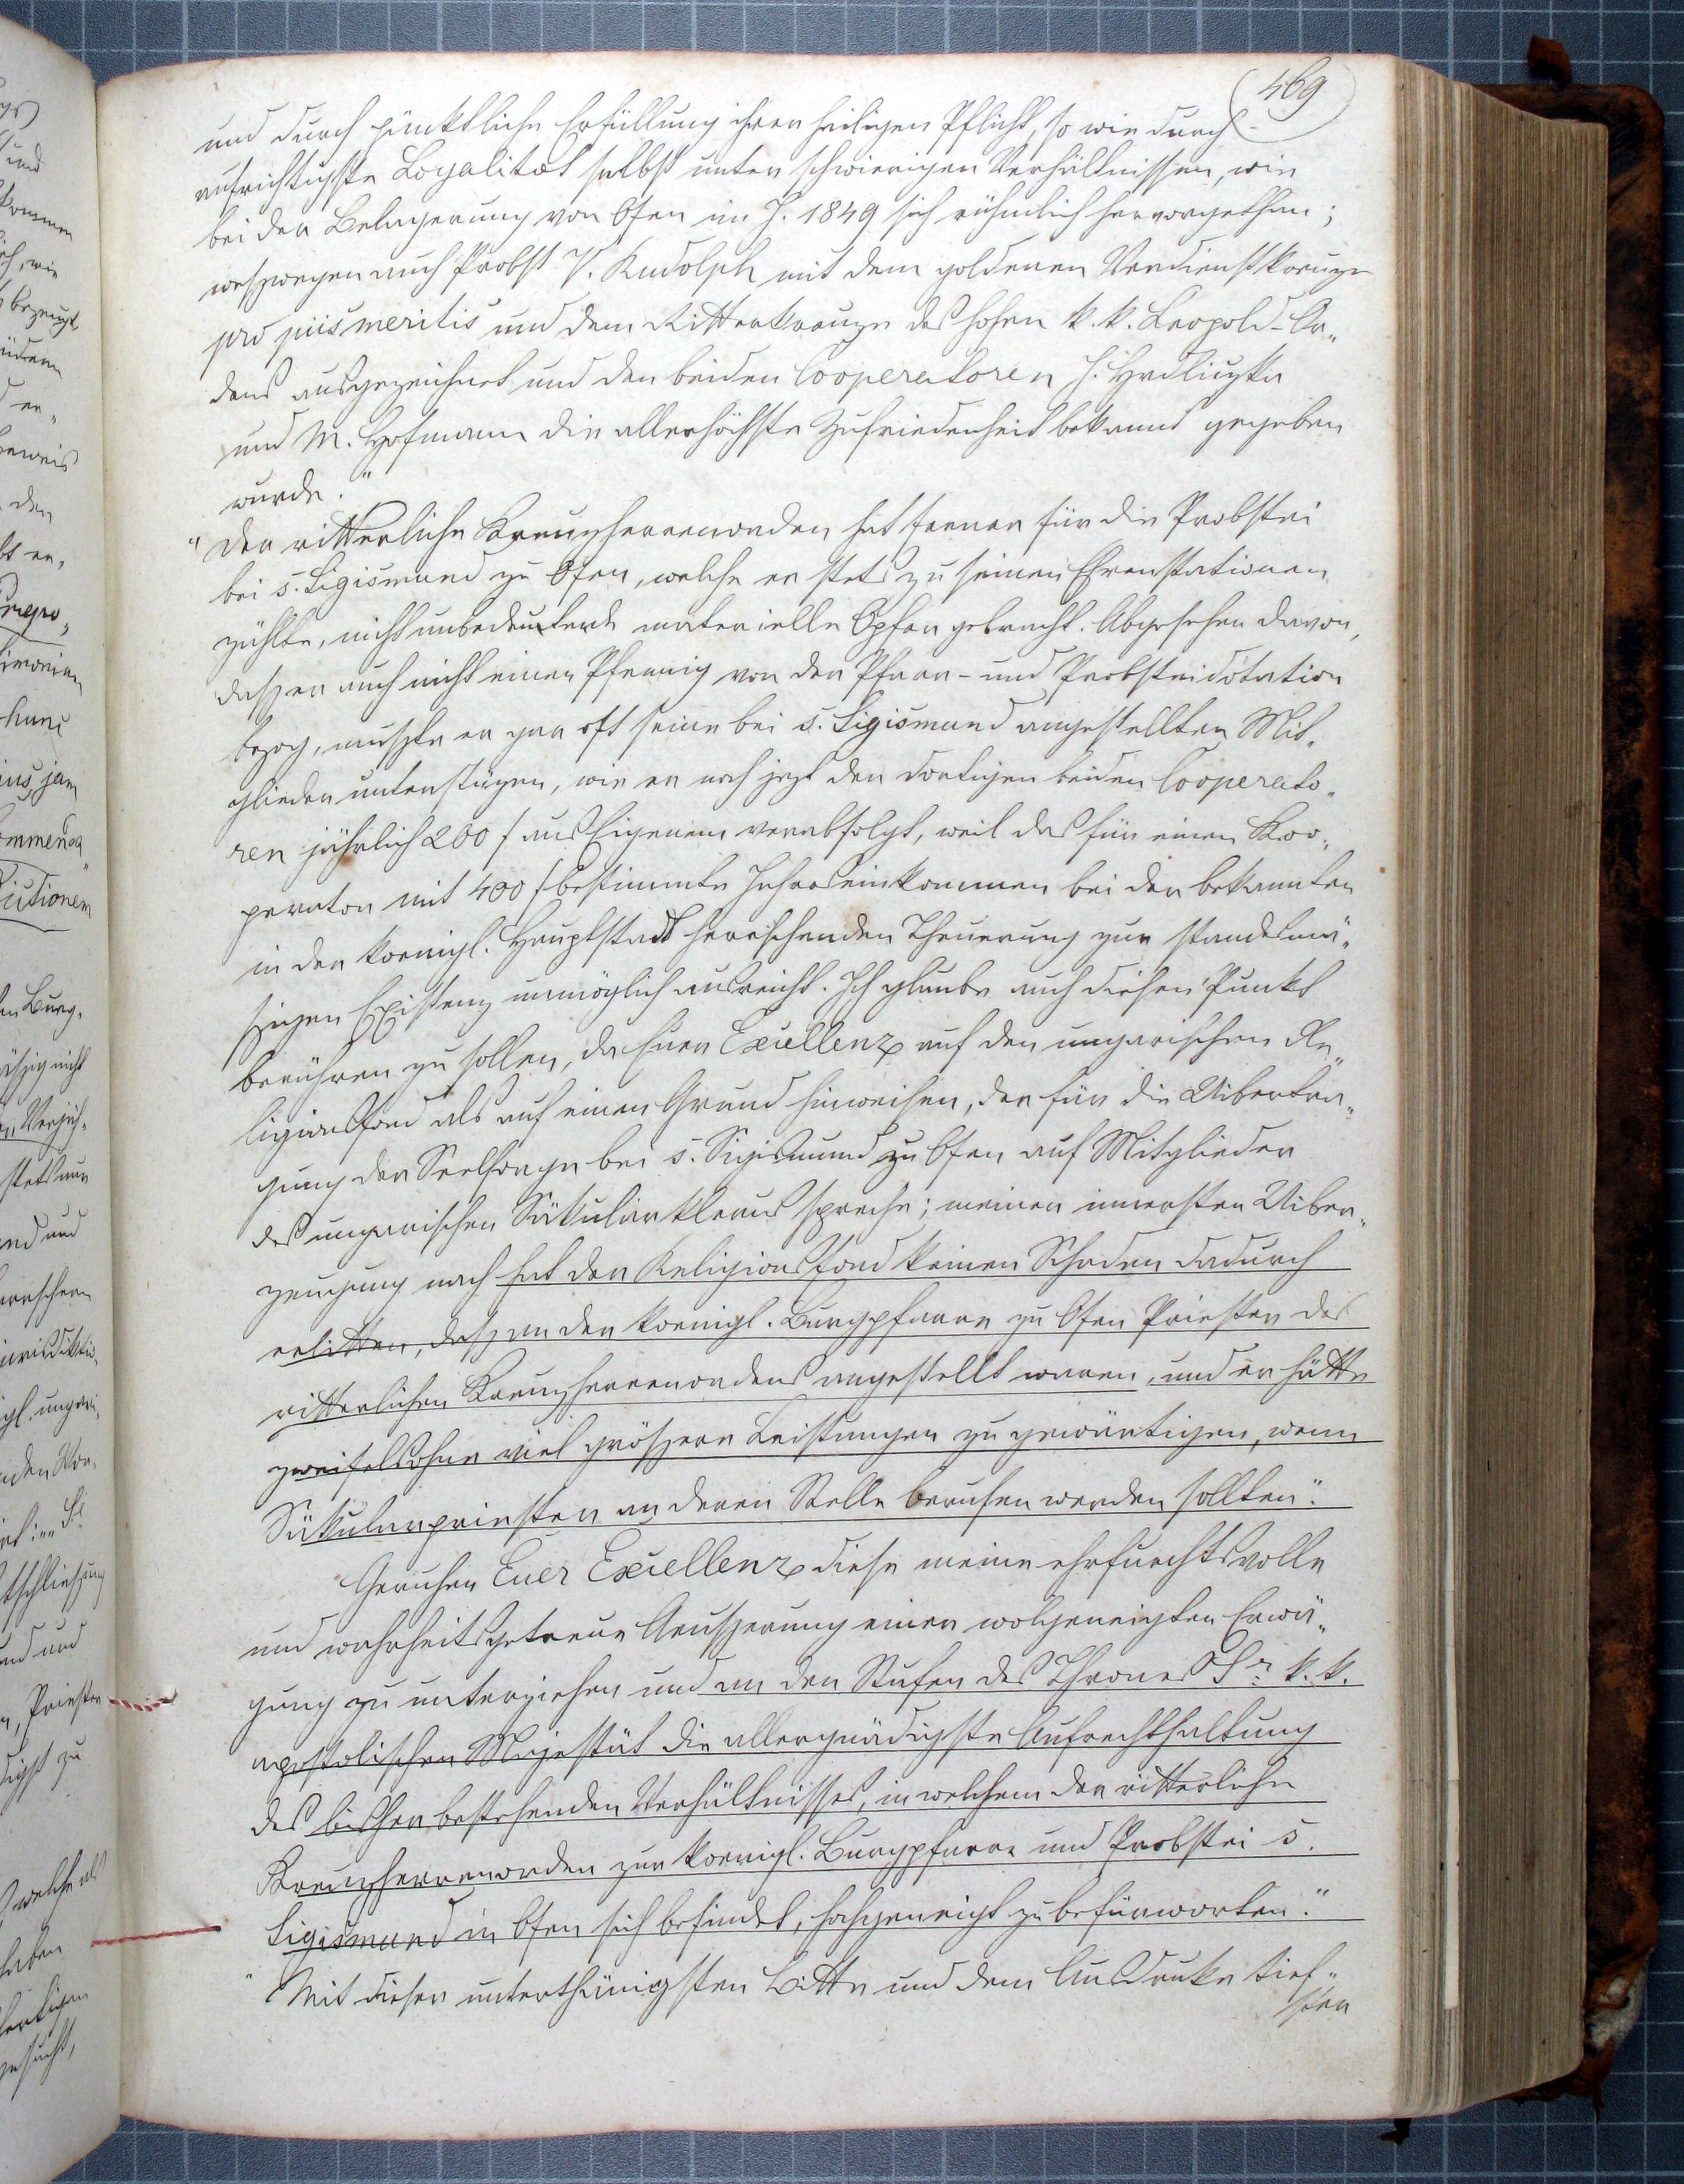 469
und durch pünktliche Erfüllung ihrer heiligen Pflicht, so wie durch
aufrichtigste Loyalitæt selbst unter schwierigen Verhältnissen, wie
bei der Belagerung von Ofen im J. 1849 sich rühmlich hervorgethan;
weßwegen auch Probst V. Rudolph mit dem goldenen Verdienstkreuze
pro piis meritis und dem Ritterkreuze des hohen k. k. Leopold-Or„
dens ausgezeichnet und den beiden Cooperatoren J. Hrdliczka
und M. Hofmann die allerhöchste Zufriedenheit bekannt gegeben
wurde."
"Der ritterliche Kreuzherrenorden hat ferner für die Probstei
bei s. Sigismund zu Ofen, welche er stets zu seinen Ehrenstationen
zählte, nicht unbedeutende materielle Opfer gebracht. Abgesehen davon,
daß er auch nicht einen Pfennig von der Pfarr- und Probsteidotation
bezog, mußte er gar oft seine bei s. Sigismund angestellten Mit„
glieder unterstüzen, wie er noch jezt den dortigen beiden Cooperato„
ren jährlich 200 f aus Eigenem verabfolgt, weil das für einen Koo„
perator mit 400 f bestimmte Jahreseinkommen bei der bekannten
in der koenigl. Hauptstadt herrschenden Theuerung zur standesmä„
ßigen Existenz unmöglich ausreicht. Ich glaube auch diesen Punkt
berühren zu sollen, da Euer Excellenz auf den ungarischen Re„
ligionsfond als auf einen Grund hinweisen, der für die Uibertra„
gung der Seelsorge bei s. Sigismund zu Ofen auf Mitglieder
des ungarischen Säkularklerus spreche; meiner innersten Uiber„
zeugung nach hat der Religionsfond keinen Schaden dadurch
erlitten, daß an der koenigl. Burgpfarre zu Ofen Priester des
ritterlichen Kreuzherrenordens angestellt waren, und er hätte
zweifelsohne viel größere Leistungen zu gewärtigen, wenn
Säkularpriester an deren Stelle berufen werden sollten."
Geruhen Euer Excellenz diese meine ehrfurchtsvolle
und wahrheitsgetreue Aeußerung einer wolgeneigten Erwä„
gung zu unterziehen und an den Stufen des Thrones Sr k. k.
apostolischen Majestät die allergnädigste Aufrechthaltung
des bisher bestehenden Verhältnisses, in welchem der ritterliche
Kreuzherrenorden zur koenigl. Burgpfarre und Probstei s.
Sigismund in Ofen sich befindet, hochgeneigt zu befürworten."
"Mit dieser unterthänigsten Bitte und dem Ausdruke tief„
sten